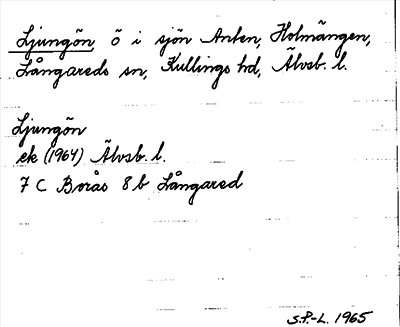 Ljungön, ö i sjön Anten, Holmängen,
Långareds sn, Kullings hd, Älvsb. l.
Ljungön
ek (1964) Älvsb. l.
7 C Borås 8b Långared
S.P.-L. 1965